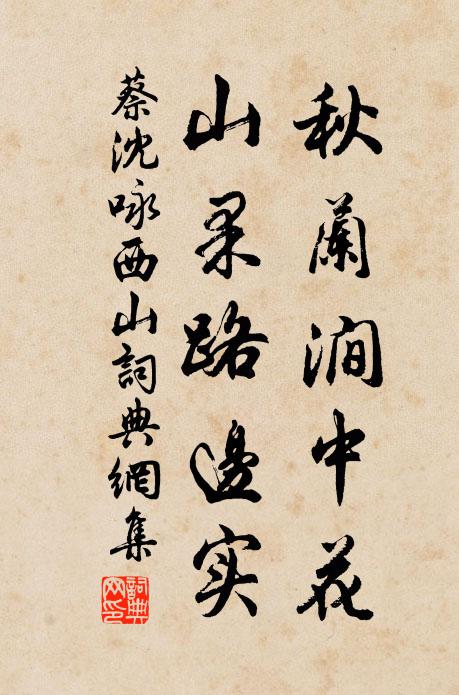 秋蘭澗中花
山果路邊实
蔡沈咏西山詞典網集
詞典网印